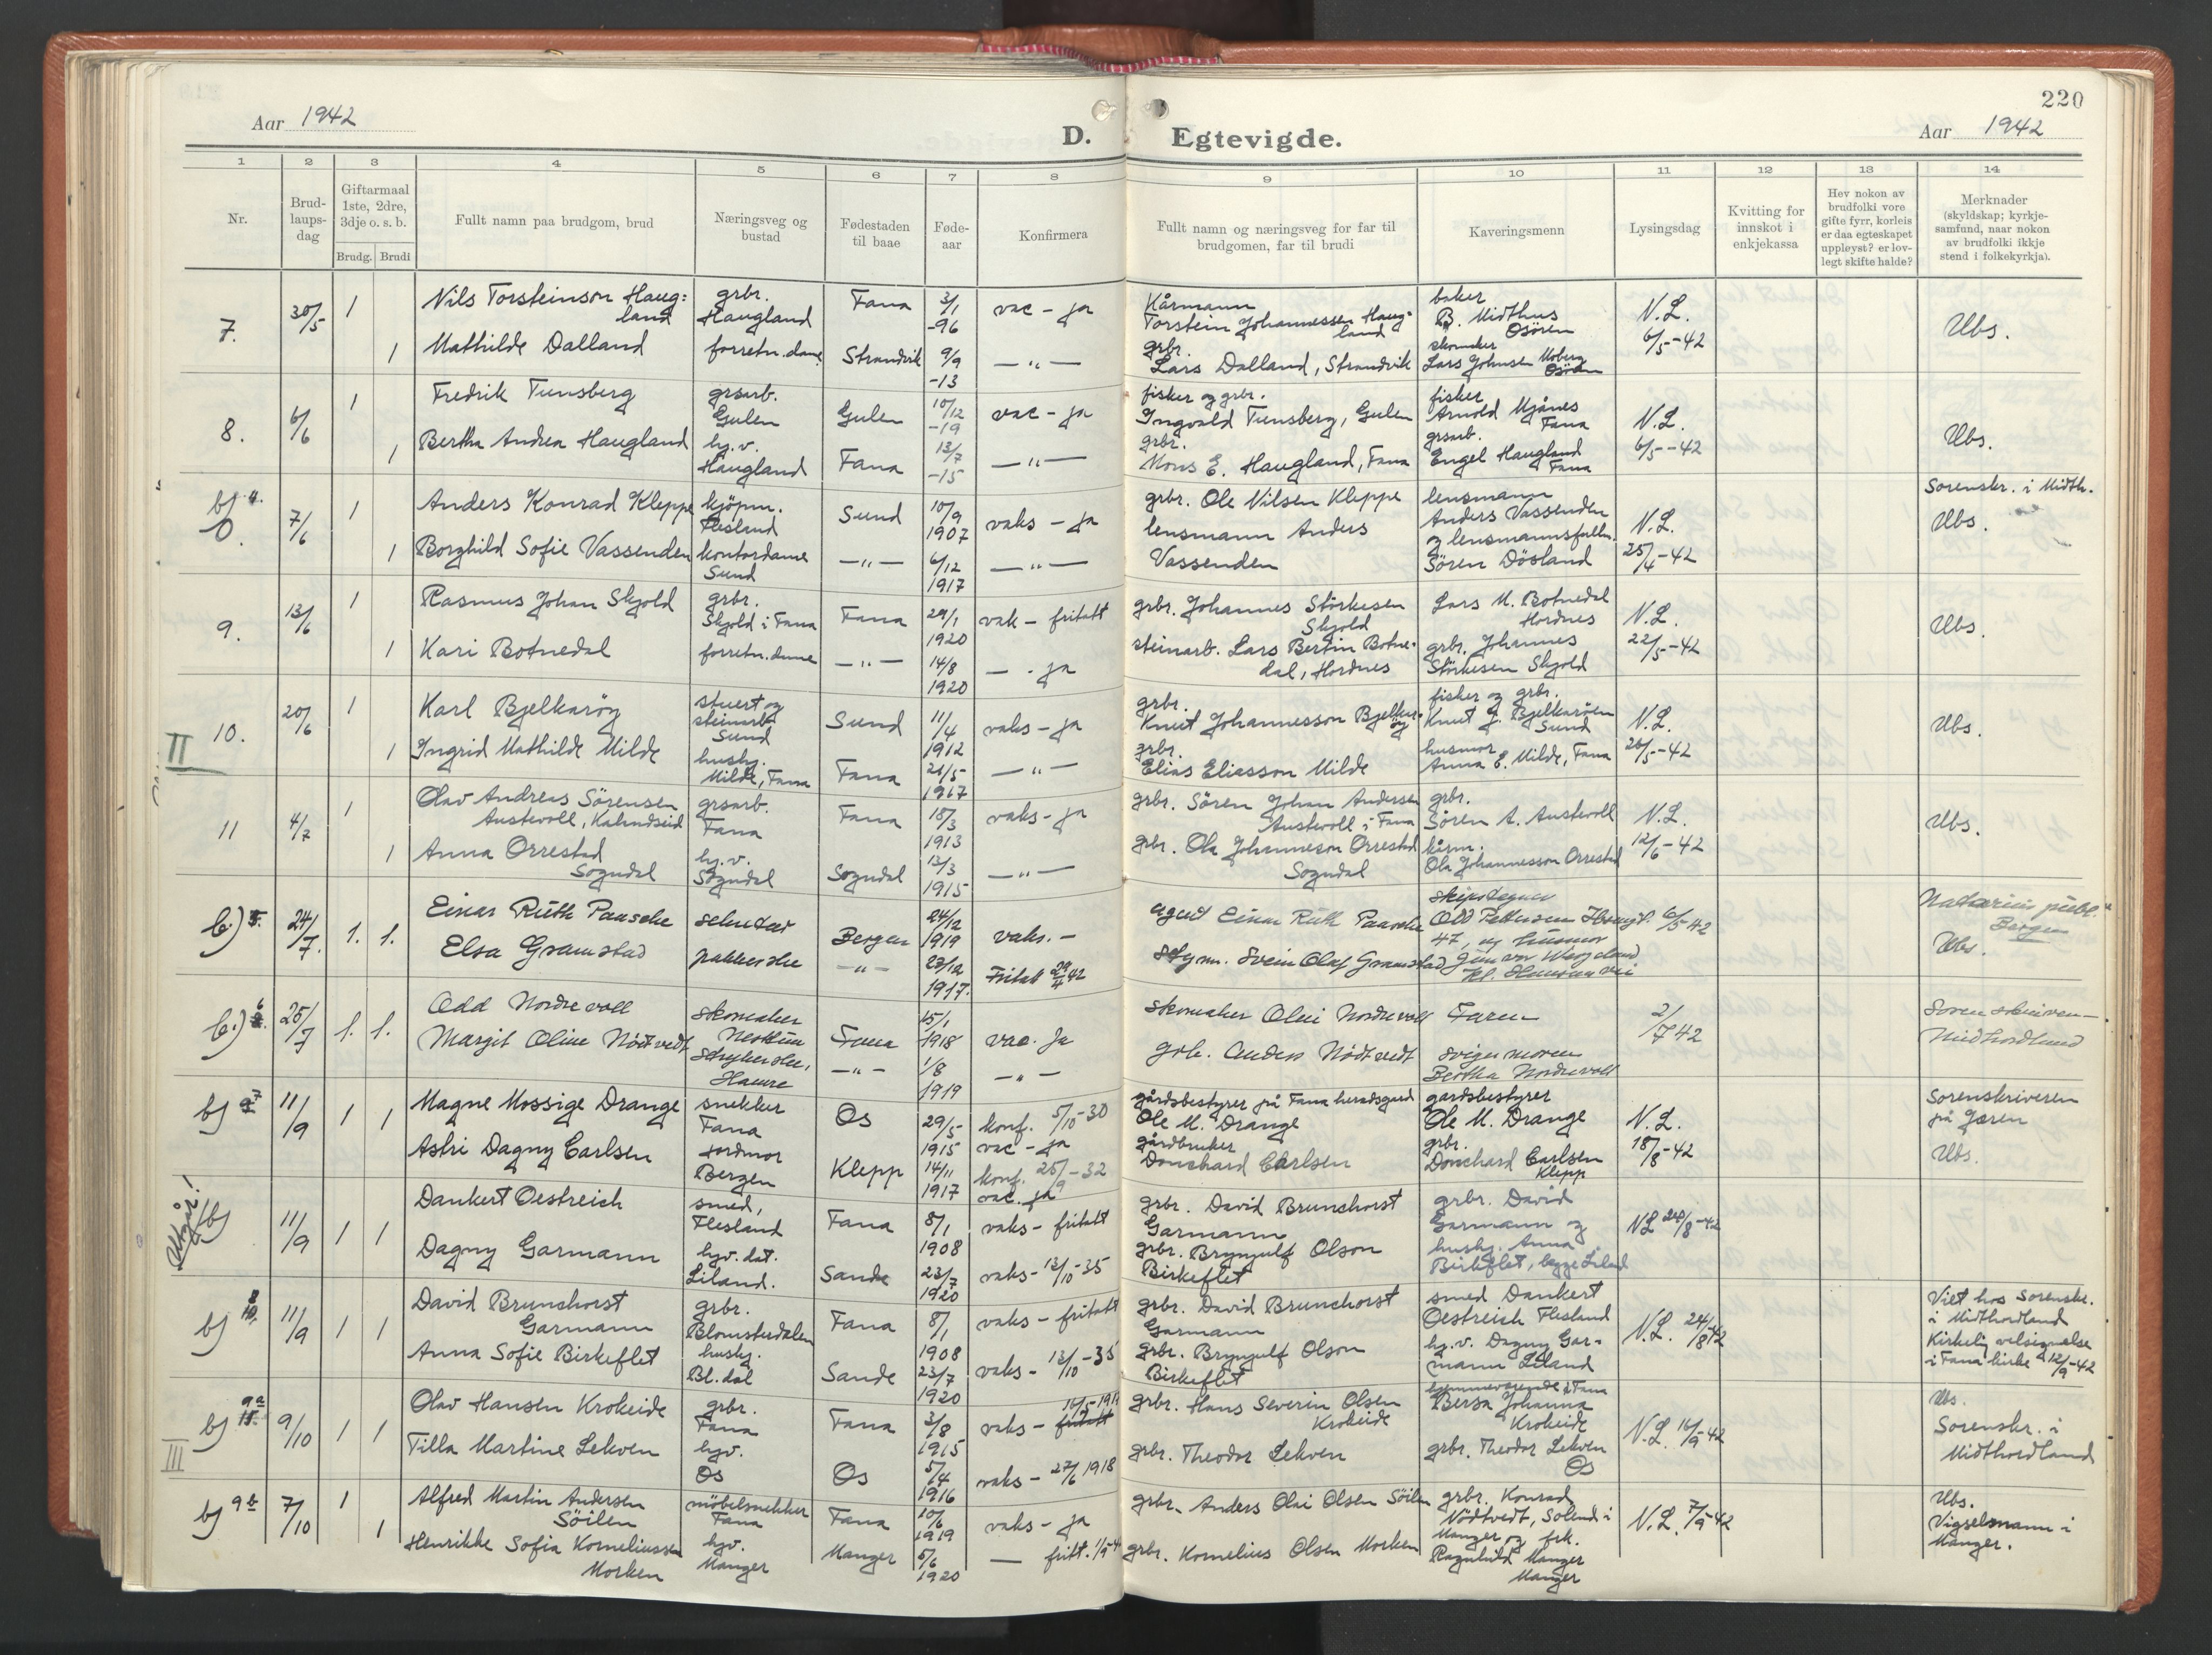 220
Aar 1942
D. Egtevigde.
Aar 1942
1 2 3 4 5 6 7 8 9 10 11 12 13 14
Nr.
Brud-
laups-
dag
Giftarmaal
1ste, 2dre,
3dje o. s. b.
Brudg. Brudi
Fullt namn paa brudgom, brud
Næringsveg og
bustad
Fødestaden
til baae
Føde-
aar
Konfirmera
Fullt namn og næringsveg for far til
brudgomen, far til brudi
Kaveringsmenn
Lysingsdag
Kvitting for
innskot i
enkjekassa
Hev nokon av
brudfolki vore
gifte fyrr, korleis
er daa egteskapet
uppløyst? er lov-
legt skifte halde?
Merknader
(skyldskap; kyrkje-
samfund, naar nokon
av brudfolki ikkje
stend i folkekyrkja).
7. 30/5 1 Nils Torsteinson Haug=
land
grbr.
Haugland
Fana 3/1 -96 vac - ja
Kårmann
Torstein Johannessen Haug=
land
baker
B. Midthus
Osören
N.L.
6/5-42
Ubs.
1 Mathilde Dalland forretn.dame Strandvik 9/9 -13 — " —
grbr.
Lars Dalland, Strandvik
skomaker
Lars Johnsen Moberg
Osören
8. 6/6 1 Fredrik Tunsberg
grsarb.
Gulen
Gulen 10/12 -19 vac - ja
fisker og grbr.
Ingvald Tunsberg, Gulen
fisker
Arnold Mjånes
Fana
N.L.
6/5--42
Ubs.
1 Bertha Andrea Haugland
hg.v.
Haugland
Fana 13/7 -15 — " —
grbr.
Mons E. Haugland, Fana
grsarb.
Engel Haugland
Fana
b) 4. 7/6 1 Anders Konrad Kleppe
kjöpm.
Flesland
Sund 10/9 1907 vaks - ja
grbr. Ole Nilsen Kleppe
lensmann
Anders Vassenden
og lensmannsfullm.
Sören Dösland
N.L.
25/4-42
Sorenskr. i Midth.
Ubs.
1 Borghild Sofie Vassenden
kontordame
Sund
— " — 6/12 1917 — " —
lensmann Anders
Vassenden
9. 13/6 1 Rasmus Johan Skjold
grbr.
Skjold i Fana
Fana 29/1 1920 vak - fritatt
grbr. Johannes Störkesen
Skjold
Lars M. Botnedal
Hordnes
N.L.
22/5-42
Ubs.
1 Kari Botnedal forretn.dame — " — 14/8 1920 — - ja
steinarb. Lars Bertin Botne-
dal, Hordnes
grbr. Johannes
Störkesen Skjold
II
10. 20/6 1 Karl Bjelkaröy
stuert og
steinarb.
Sund
Sund 11/4 1912 vaks - ja
grbr.
Knut Johannesson Bjelkar-
öy
fisker og grbr.
Knut J. Bjelkaröen
Sund
N.L.
26/5-42
Ubs.
1 Ingrid Mathilde Milde
hushj.
Milde, Fana
Fana 21/5 1917 — " —
grbr.
Elias Eliasson Milde
husmor
Anna E. Milde, Fana
11 4/7 1 Olav Andreas Sörensen
Austevoll, Kalandseid
grsarb.
Fana
Fana 18/3 1913 vaks - ja
grbr. Sören Johan Andersen
Austevoll i Fana
grbr.
Sören A. Austevoll
N.L.
12/6-42
Ubs.
1 Anna Orrestad
Sogndal
hg.v.
Sogndal
Sogndal 12/3 1915 — " —
grbr. Ola Johanneson Orrestad
Sogndal
kårm.
Ola Johannesson Orrestad
b.) 5. 24/7. 1. 1. Einar Rüth Paasche
Bergen 24/12 1919 vaks. -
agent Einar Rüth Paasche
6/5 42
Bergen
Ubs.
Elsa Gramstad
pakkerske
— " — 23/12 1917. Fritatt 29/4 42
Svein Olaf Gramstad
b.) 6 25/7 1. 1. Odd Nordrevoll
skomaker
Nesttun
Fana 15/1 1918 vac. ja
skomaker Olai Nordrevoll
Faren
2/7 42
Sorenskriveren
Midhordland
Margit Oline Nödtvedt
Strykerske,
— " — 1/8 1919 — " —
grb. Anders Nödtvedt
svigermoren
Bertha Nordrevoll
b) 7 11/9 1 1 Magne Mossige Drange
snekker
Fana
Os 29/5 1915 konf. 5/10-30
vac - ja
gårdsbestyrer på Fana heradsgard
Ole M. Drange
gardsbestyrer
Ole M. Drange
N.L.
18/8-42
Sorenskriveren
på Jæren
Ubs.
Astri Dagny Carlsen
jordmor
Bergen
Klepp 14/11 1917 konf. 25/9-32
vac. ja
gårdbruker
Donchard Carlsen
grbr.
Donchard Carlsen
Klepp
Utgår!
b) 11/9 1 1 Dankert Oestreich
smed,
Flesland
Fana 8/1 1908 vaks - fritatt
grbr. David Brunchorst
Garmann
grbr. David
Garmann og
hushj. Anna
Birkeflet, begge Liland
NL 24/8-42
Dagny Garmann
hgv. dat.
Liland.
Sande 23/7 1920 vaks - 13/10-35
grbr. Brynjulf Olson
Birkeflet
b) 8 11/9 1 1 David Brunchorst
Garmann
grbr.
Blomsterdalen
Fana 8/1 1908 vaks - fritatt
grbr. David Brunchorst
Garmann
smed Dankert
Oestreich Flesland
hg.v. Dagny Gar-
mann Liland
N.L. 24/8 42
Viet hos Sorenskr.
i Midthordland
Kirkelig velsignelse
i Fana kirke 12/9-42
Anna Sofie Birkeflet
hushj.
Bl.dal
Sande 23/7 1920 vaks - 13/10-35
grbr. Brynjulf Olson
Birkeflet
III
b) 9a 9/10 1 1 Olav Hansen Krokeide
grbr.
Fana
Fana 3/8 1915 vaks - fritatt
grbr. Hans Severin Olsen
Krokeide
hjemmeværende i Fana
Berta Johanna
Krokeide
N.L. 16/9-42
Ubs.
Sorenskr. i
Midthordland
Tilla Martine Lekven
hgv.
Os
Os 5/4 1916 vaks - 27/6 1918
grbr. Theodor Lekven
grbr. Theodor Lekven
Os
b) 9b 7/10 1 Alfred Martin Andersen
Söilen
möbelsnekker
Fana
Fana 10/6 1919 vaks - ja
grbr. Anders Olai Olsen Söilen
grbr. Konrad
Nödtvedt, Solend i
Manger og frk.
Ragnhild Manger
Manger
N.L. 7/9-42
Ubs.
Vigselsmann i
Manger.
1 Henrikke Sofia Korneliussen
Morken
hgv.
Manger
Manger 5/6 1920 — fritt.
grbr. Kornelius Olsen Morken